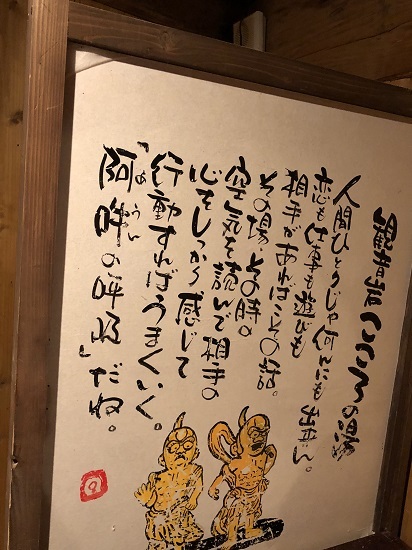 観音岩こころの湯
人間ひとりじゃ何んにも出来ん。
恋も仕事も遊びも
相手があればこその話。
その場その時の
空気を読んで相手の
心をしっかり感じて
行動すればうまくいく。
「阿吽の呼吸」だね。
あうん